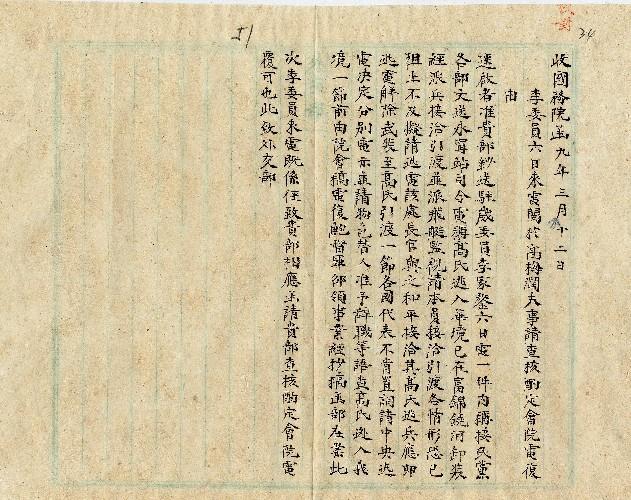 34
51
收國務院函九年三月十二日
李委員六日來電關於高梅潤夫事請查核酌定會院電復
由
逕啟者准貴部鈔送駐崴委員李家鏊六日電一件內稱接民黨
各部交送水甯站司令電稱高氏逃入華境已在富錦饒河卸裝
經派兵接洽引渡並派飛艇監視請本員接洽引渡各情形恐已
阻止不及擬請逃電該處長官與之和平接洽其高氏逃兵應即
逃電解除武裝至高氏引渡一節各國代表不肯置詞請中央迅
電決定分別電示並請物色替人准予辭職等語查高氏逃入我
境一節前由院會稿電復鮑督軍邵領事業經抄稿函部在案此
次李委員來電既係任致貴部相應函請貴部查核酌定會院電
覆可也此致外交部